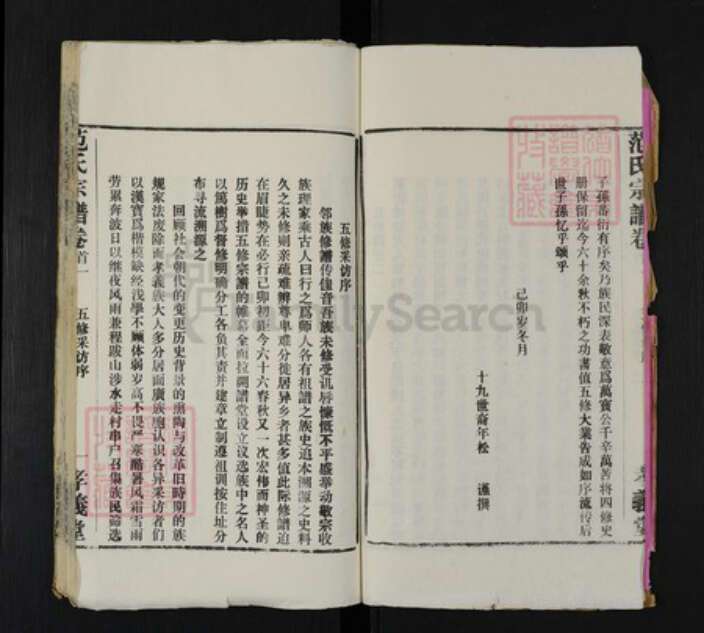 范氏宗譜卷
子孫蕃衍有序矣乃族民深表敬意爲萬寶公千辛萬苦將四修史
册保留迄今六十余秋不朽之功書值五修大業告成如序流传后
世子孫忆乎頌乎
己卯岁冬月
十九世裔年松 谨撰
義堂
五修采访序
邻族修譜传佳音吾族未修受讥辱慷慨不平盛举动敬宗收
族理家乘古人曰行之爲师人各有祖譜之族史追本溯源之史料
久之未修则亲疏难辨尊卑难分徙居异乡者甚多值此际修譜迫
在眉睫势在必行己卯初距今六十六春秋又一次宏伟而神圣的
历史举措五修宗譜的帷幕全面拉開譜堂设立议选族中之名人
以篤樹爲督修明确分工各负其责并建章立制遵祖训按住址分
布寻流溯源之
回顾社会朝代的变更历史背景的熏陶与改革旧時期的族
规家法废除而孝義族大人多分居面廣族胞认识各异采访者们
以漢寶爲楷模缺经浅學不顾体弱岁高不畏严寒酷暑风霜雪雨
劳累奔波日以继夜风雨兼程跋山涉水走村串户召集族民筛选
范氏宗譜卷首一
五修采访序
孝義堂
FamilySearch